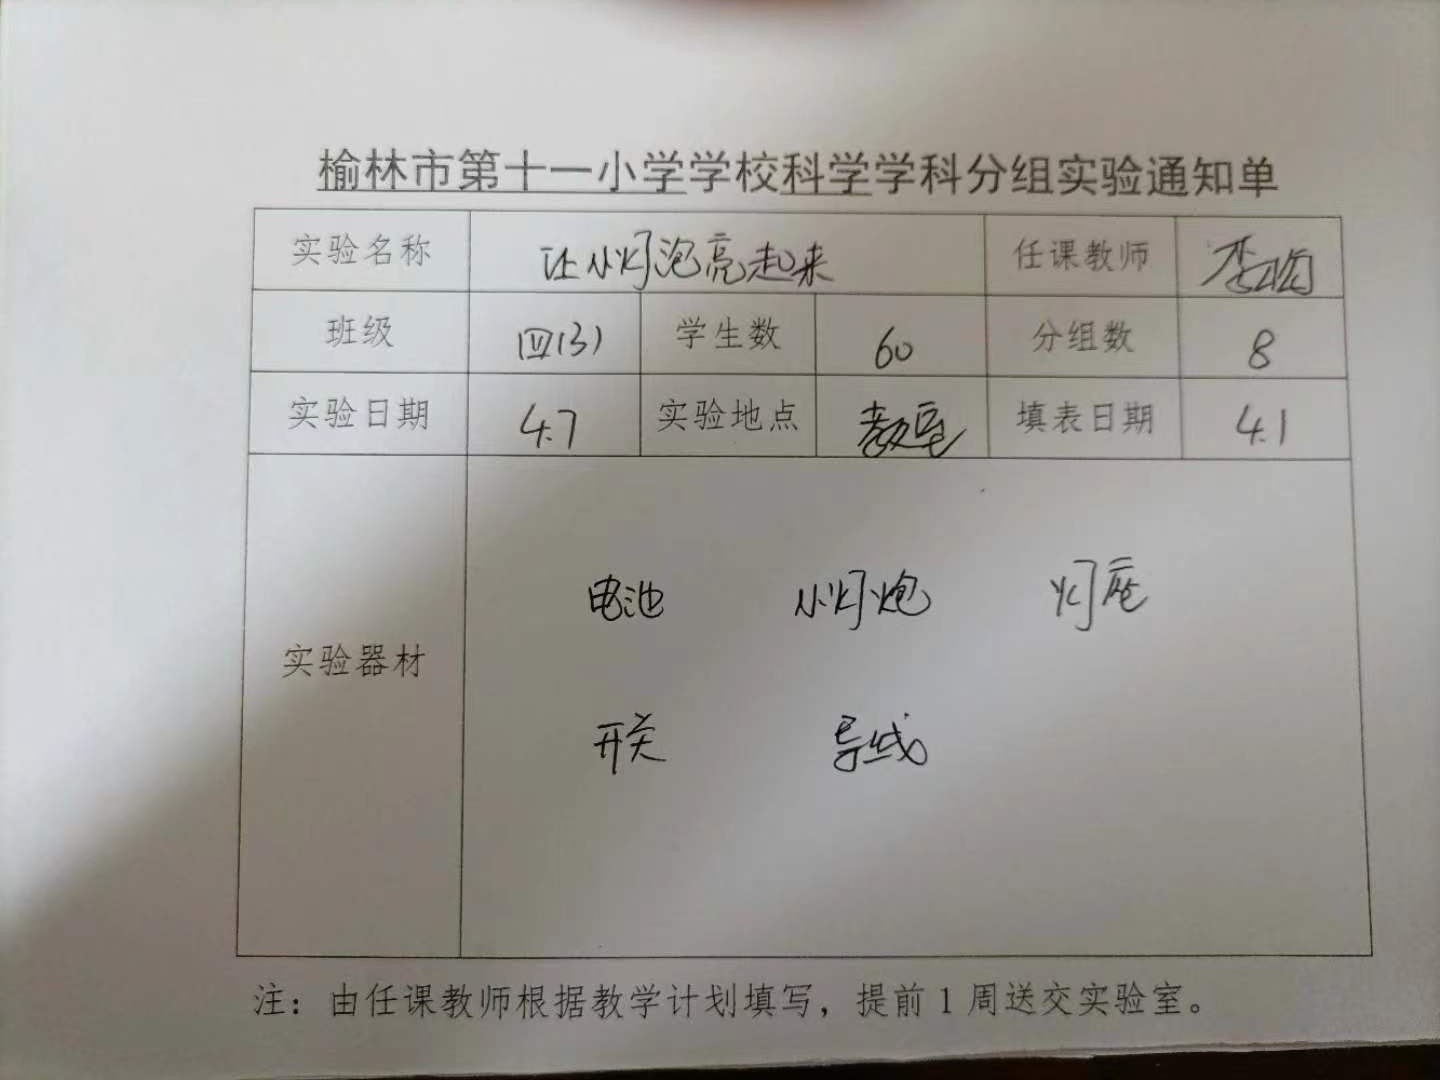 榆林市第十一小学学校科学学科分组实验通知单
实验名称 让小灯泡亮起来 任课教师 李
班级 四(3) 学生数 60 分组数 8
实验日期 4.7 实验地点 教室 填表日期 4.1
实验器材
电池 小灯炮 灯座
开关 导线
注：由任课教师根据教学计划填写，提前1周送交实验室。